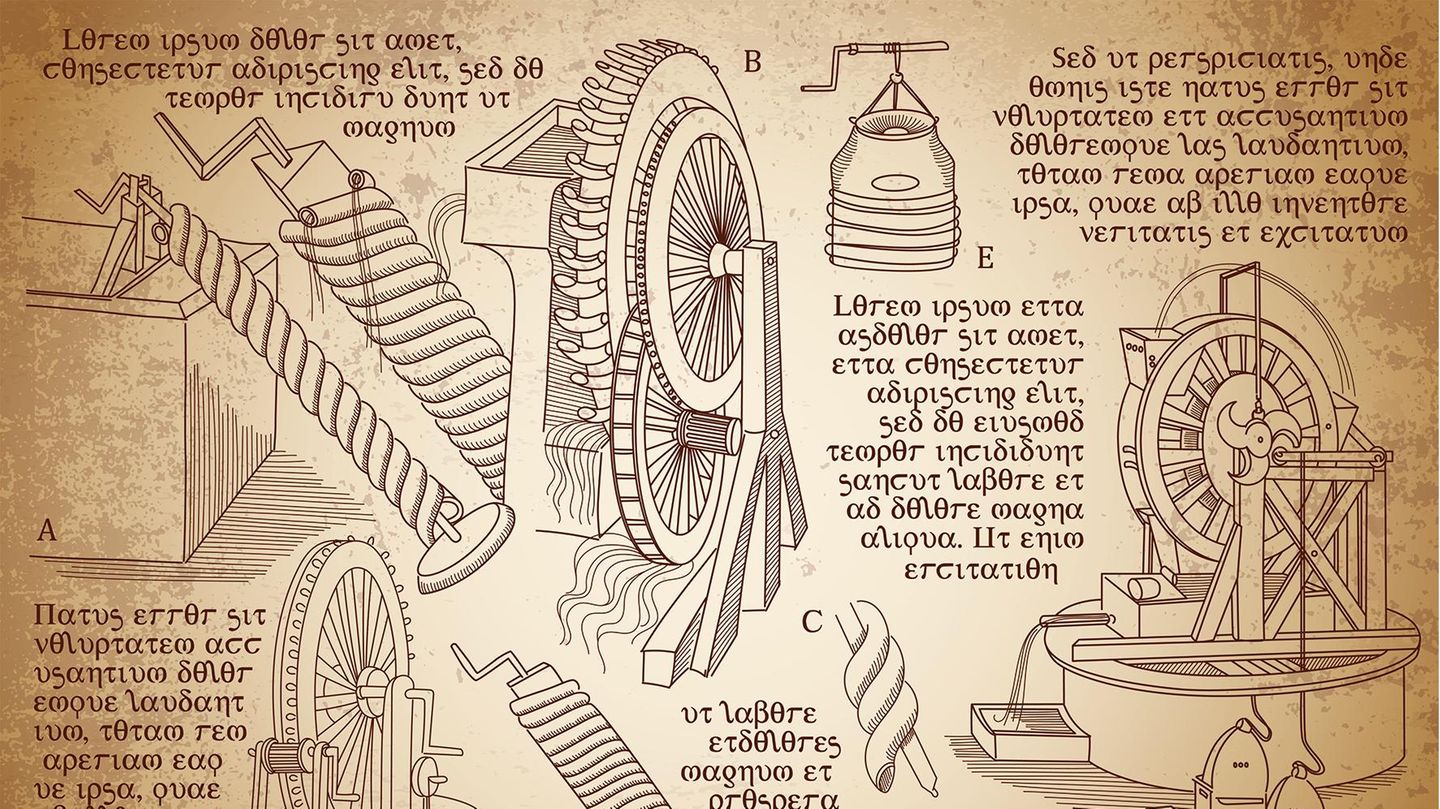 Lorem ipsum dolor sit amet,
consectetur adipiscing elit, sed do
tempor incidiru dunt ut
magnum
B
E
Sed ut perspiciatis, unde
omnis iste natus error sit
voluptatem ett accusantium
doloremque las laudantium,
totam rema aperiam eaque
ipsa, quae ab illo inventore
veritatis et excitatum
Lorem ipsum etta
asdolor sit amet,
etta consectetur
adipiscing elit,
sed do eiusmod
tempor incididunt
sancut labore et
ad dolore magna
aliqua. Ut enim
ercitation
A
Natus error sit
voluptatem acc
usantium dolor
emque laudant
ium, totam rem
aperiam eaq
ue ipsa, quae
C
ut labore
etdolores
magnum et